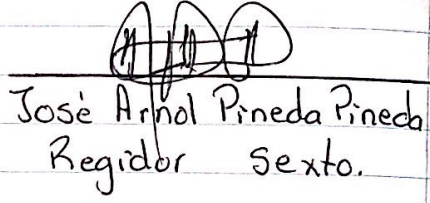 José Arnol Pineda Pineda
Regidor Sexto.